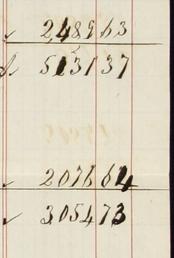 ✓ 2,489 63
513 1 37
✓ 2076 64
✓ 3,054 73